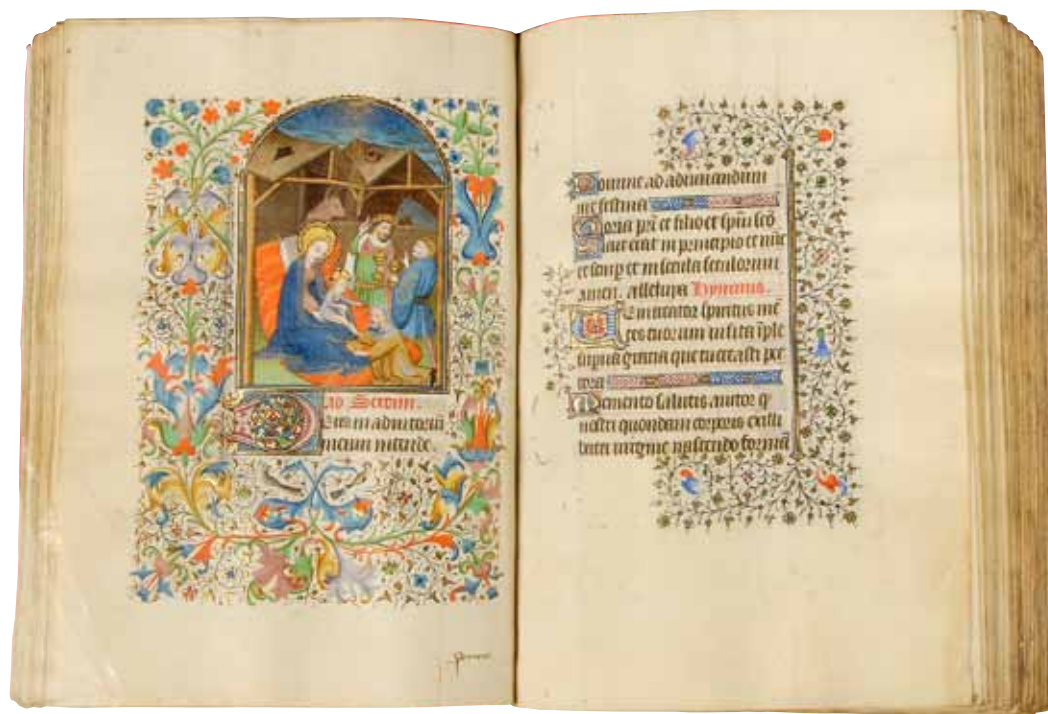 Ad Sextam.
Deus in adiutoriū
meum intende
Domine ad adiuuandum
me festina
Gloria pr̄i et filio et sp̄ui sc̄o
sicut erat in principio et nūc
et semp et in secula seculorum
amen. alleluya Hymnus.
Veni creator spiritus mē
tes tuorum uisita īple
superna gratia que tu creasti pec
tora
Memento salutis auctor q
nostri quondam corporis ex illi
bata uirgine nascendo formā